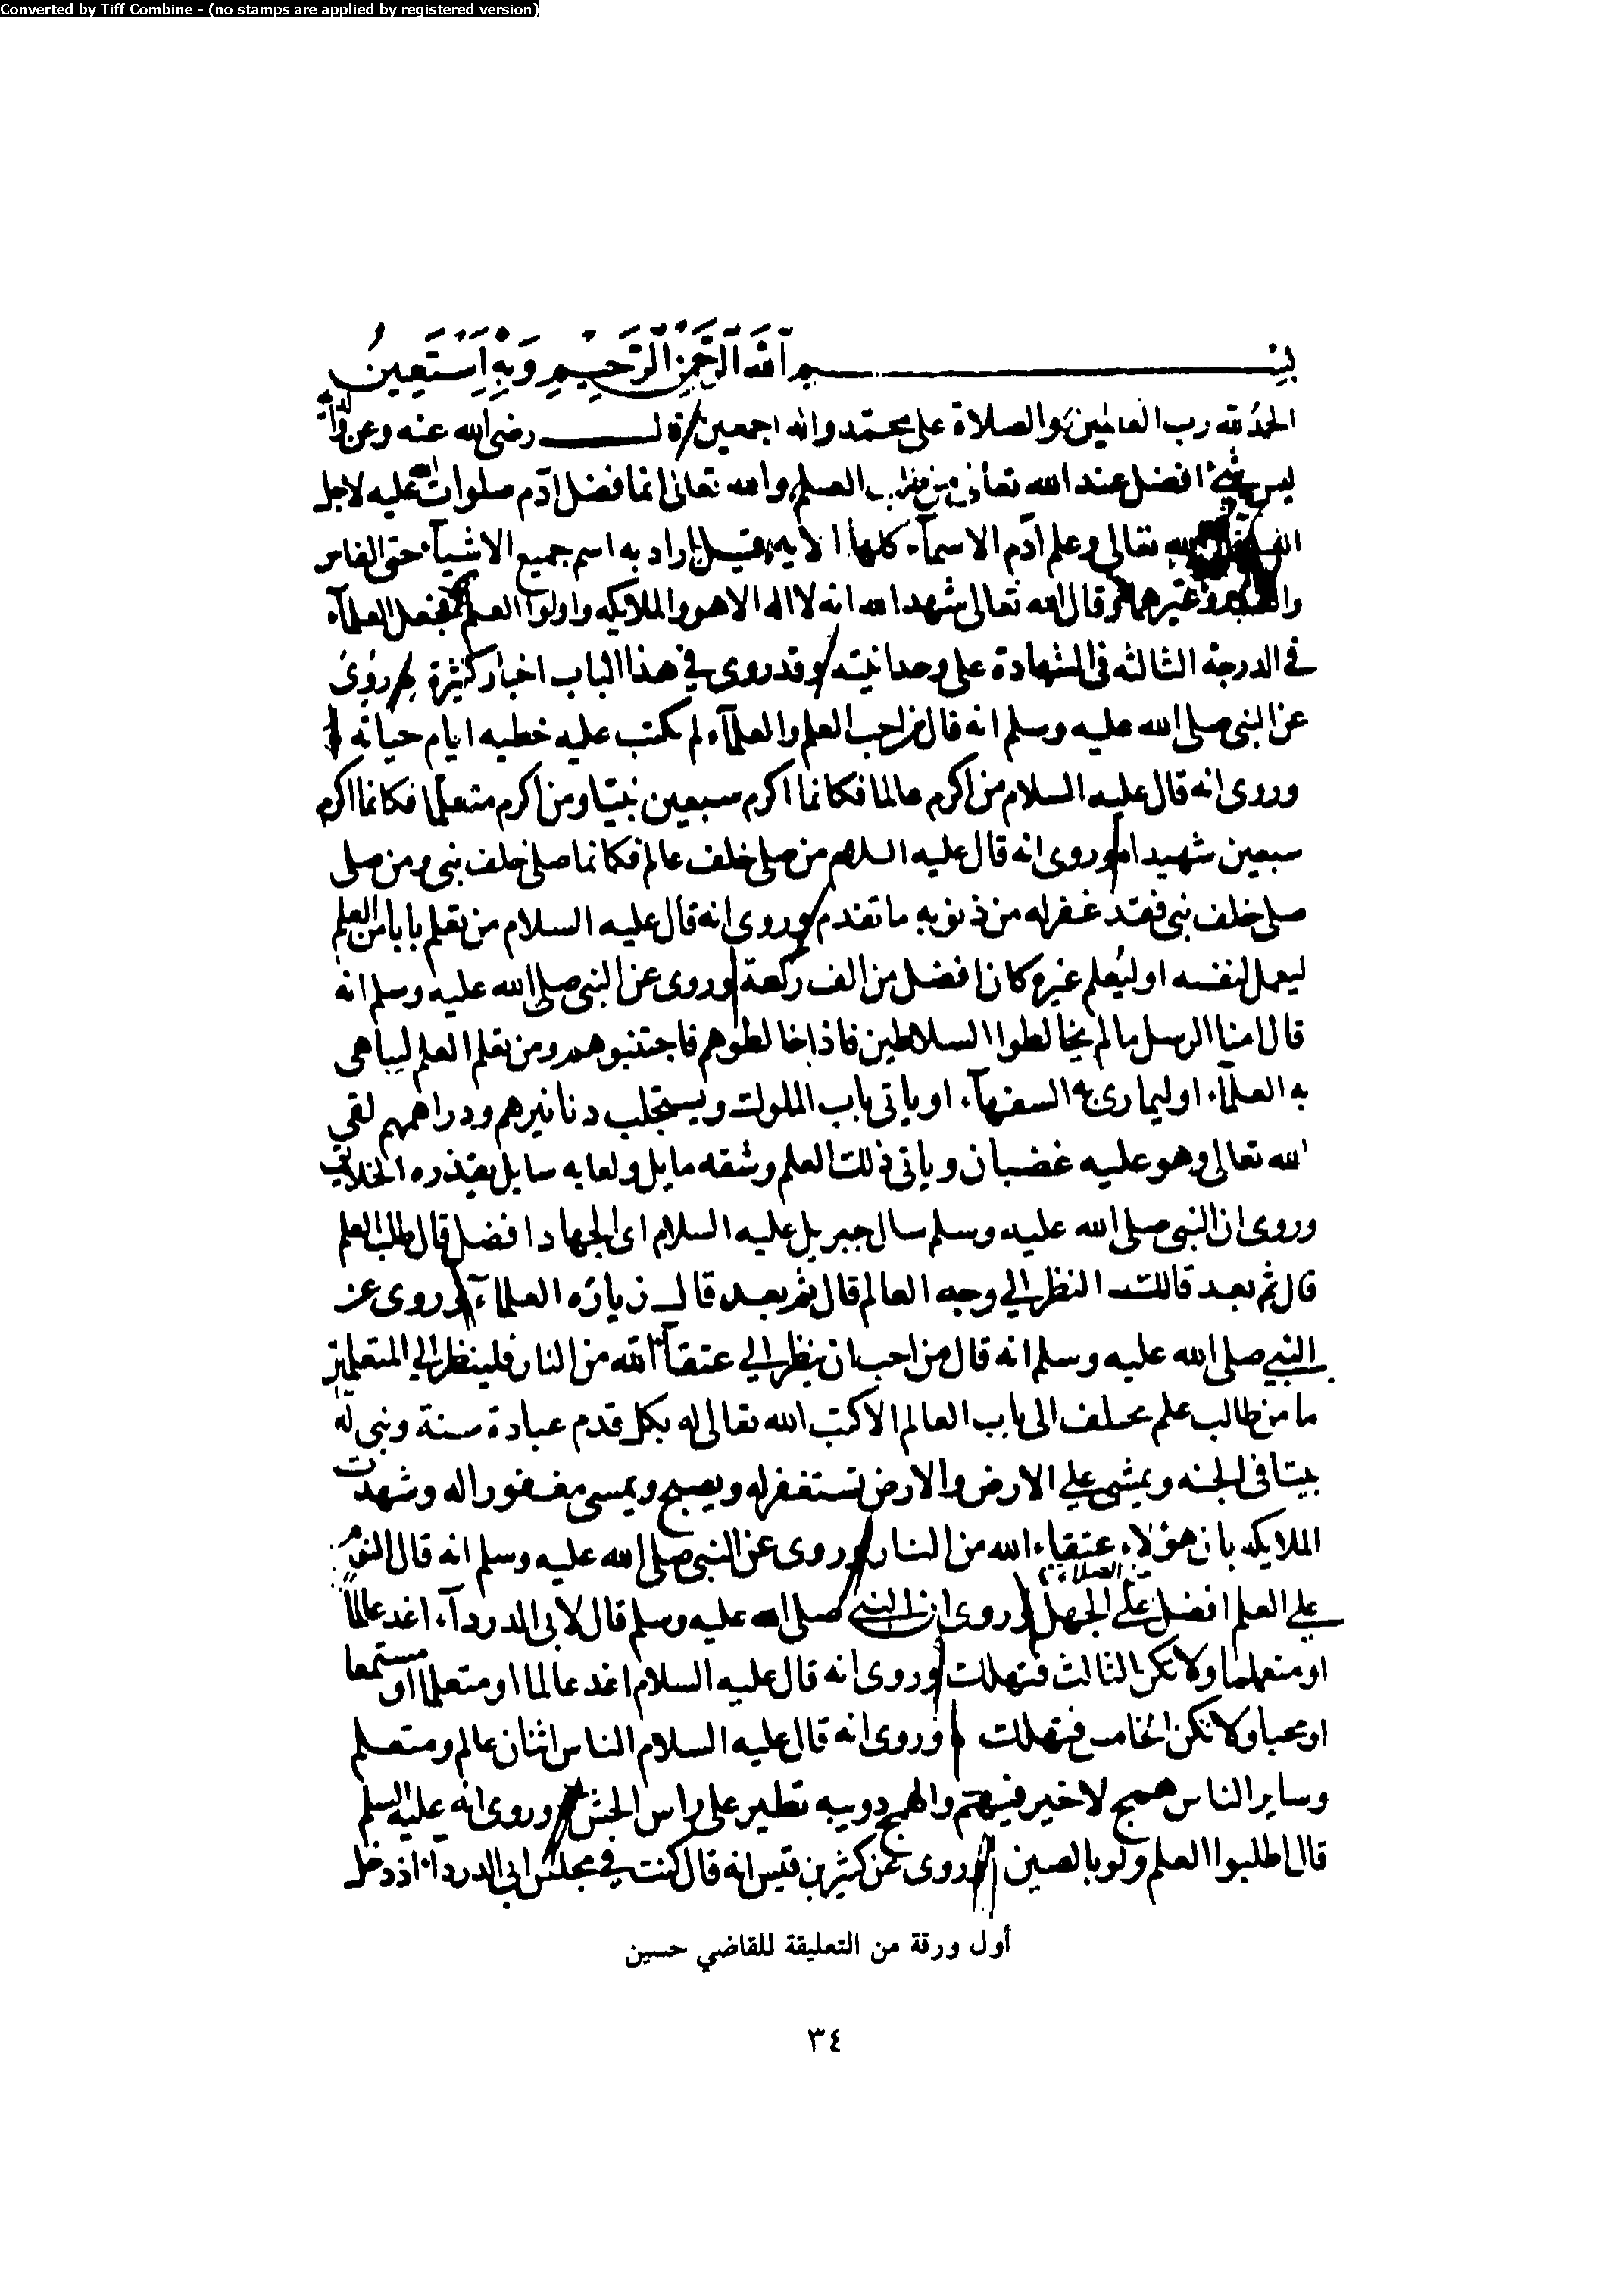 Converted by Tiff Combine - (no stamps are applied by registered version)
بسم الله الرحمن الرحيم وبه استعين
الحمد لله رب العالمين والصلاة على محمد واله اجمعين قال رضي الله عنه وعن
ليس شئ افضل عند الله تعالى من طلب العلم والله تعالى انما فضل ادم صلوات الله عليه لاجل
تعالى وعلم آدم الاسمآء كلها الايه قيل اراد به اسم جميع الاشيآء حتى الفاس
وغيرهما وقال الله تعالى شهد الله انه لا اله الا هو والملايكه واولوا العلم فجعل العلمآء
في الدرجة الثالثه في الشهادة على وحدانيته وقد روى في هذا الباب اخبار كثيرة روى
عن النبي صلى الله عليه وسلم انه قال من احب العلم والعلمآء لم يكتب عليه خطيه ايام حياته
وروى انه قال عليه السلام من اكرم عالما فكانما اكرم سبعين نبيا ومن اكرم متعلما فكانما اكرم
سبعين شهيدا وروى انه قال عليه السلم من صلى خلف عالم فكانما صلى خلف نبي ومن صلى
صلى خلف نبي فقد غفر له من ذنوبه ما تقدم وروى انه قال عليه السلام من تعلم بابا من العلم
ليعمل لنفسه او ليعلم غيره كان افضل من الف ركعة وروى عن النبي صلى الله عليه وسلم انه
قال امنا الرسل ما لم يخالطوا السلاطين فاذا خالطوهم فاجتنبوهم ومن تعلم العلم ليباهى
به العلمآء او ليمارى به السفهآء او ياتى باب الملوك ويستجلب دنانيرهم ودراهمهم لقي
الله تعالى وهو عليه غضبان وياتى ذلك العلم وشقه مايل ولعابه سايل يقذره الخلايق
وروى ان النبي صلى الله عليه وسلم سال جبريل عليه السلام اى الجهاد افضل قال طلب العلم
قال ثم بعد قال النظر الي وجه العالم قال ثم بعد قال زيارة العلمآء وروى عن
النبي صلى الله عليه وسلم انه قال من احب ان ينظر الي عتقآء الله من النار فلينظر الي المتعلمين
ما من طالب علم يختلف الى باب العالم الا كتب الله تعالى له بكل قدم عبادة سنة وبنى له
بيتا في الجنه ويمشى علي الارض والارض تستغفر له ويصبح ويمسى مغفورا له وشهدت
الملايكه بان هؤلاء عتقاء الله من النار وروى عن النبي صلى الله عليه وسلم انه قال النوم
علي العلم افضل من الصلاة علي الجهل وروى ان النبي صلى الله عليه وسلم قال لابى الدردآء اغد عالما
او متعلما ولا تكن الثالث فتهلك وروى انه قال عليه السلام اغد عالما او متعلما او مستمعا
او محبا ولا تكن الخامس فتهلك وروى انه قال عليه السلام الناس اثنان عالم ومتعلم
وساير الناس همج لا خير فيهم والهمج دويبه تطير على راس الحش وروى انه عليه السلم
قال اطلبوا العلم ولو بالصين وروى عن كثير بن قيس انه قال كنت في مجلس ابى الدرداء اذ دخل
أول ورقة من التعليقة للقاضي حسين
٣٤